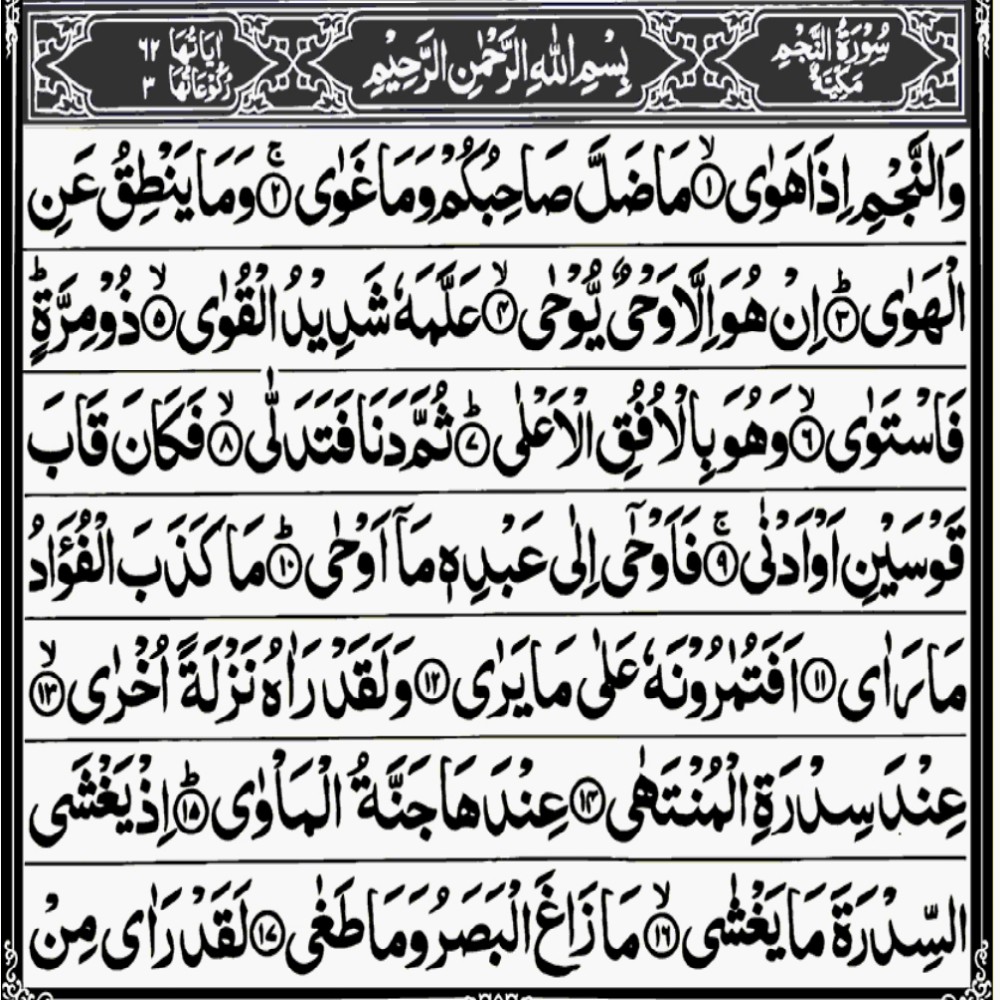 سُوْرَةُ النَّجْمِ مَكِّيَّةٌ
بِسْمِ اللهِ الرَّحْمٰنِ الرَّحِيْمِ
اٰيَاتُهَا ٦٢ رُكُوْعَاتُهَا ٣
وَالنَّجْمِ اِذَا هَوٰى ۙ﴿۱﴾ مَا ضَلَّ صَاحِبُكُمْ وَمَا غَوٰى ۚ﴿۲﴾ وَمَا يَنْطِقُ عَنِ
الْهَوٰى ؕ﴿۳﴾ اِنْ هُوَ اِلَّا وَحْىٌ يُّوْحٰى ۙ﴿۴﴾ عَلَّمَهٗ شَدِيْدُ الْقُوٰى ۙ﴿۵﴾ ذُوْ مِرَّةٍ ؕ
فَاسْتَوٰى ۙ﴿۶﴾ وَهُوَ بِالْاُفُقِ الْاَعْلٰى ؕ﴿۷﴾ ثُمَّ دَنَا فَتَدَلّٰى ۙ﴿۸﴾ فَكَانَ قَابَ
قَوْسَيْنِ اَوْ اَدْنٰى ۚ﴿۹﴾ فَاَوْحٰٓى اِلٰى عَبْدِهٖ مَآ اَوْحٰى ؕ﴿۱۰﴾ مَا كَذَبَ الْفُؤَادُ
مَا رَاٰى ﴿۱۱﴾ اَفَتُمٰرُوْنَهٗ عَلٰى مَا يَرٰى ﴿۱۲﴾ وَلَقَدْ رَاٰهُ نَزْلَةً اُخْرٰى ۙ﴿۱۳﴾
عِنْدَ سِدْرَةِ الْمُنْتَهٰى ﴿۱۴﴾ عِنْدَهَا جَنَّةُ الْمَاْوٰى ؕ﴿۱۵﴾ اِذْ يَغْشَى
السِّدْرَةَ مَا يَغْشٰى ۙ﴿۱۶﴾ مَا زَاغَ الْبَصَرُ وَمَا طَغٰى ﴿۱۷﴾ لَقَدْ رَاٰى مِنْ